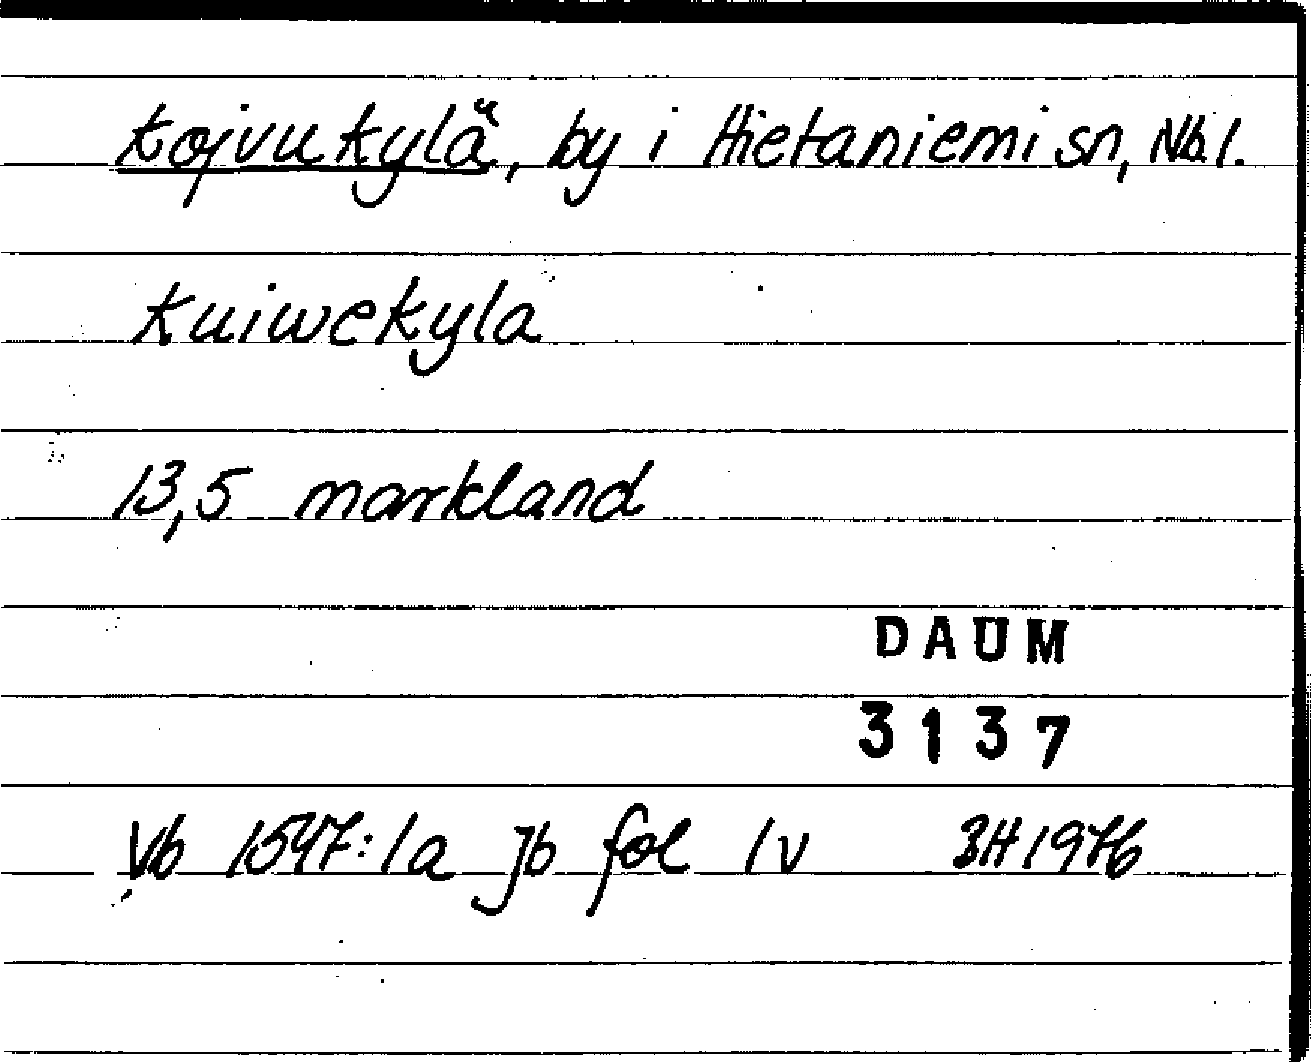 Kojvukylä, by i Hietaniemi sn, Nb.l.
Kuiwekyla
13,5 markland
DAUM
3137
Vb 1547:1a Jb fol 1v BH 1976